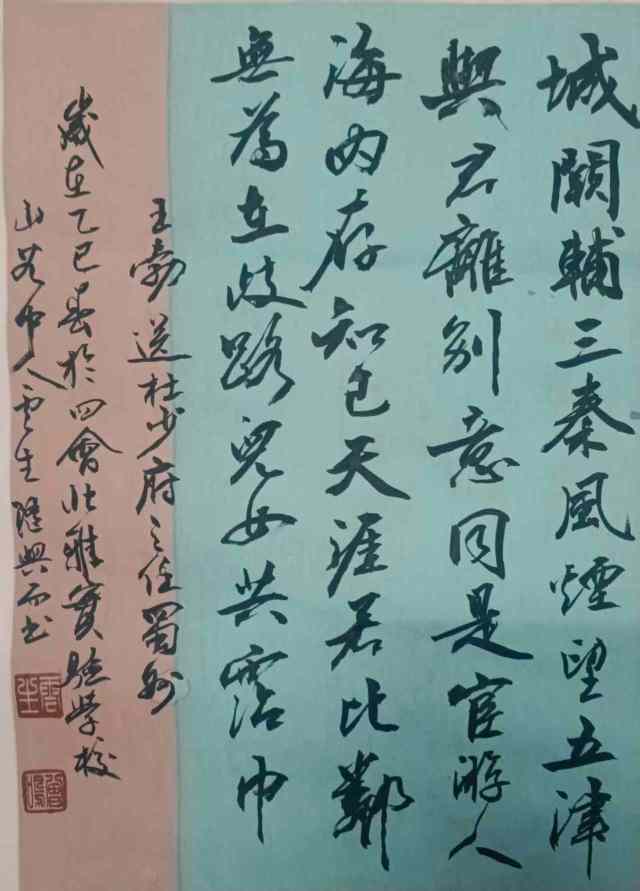 城闕輔三秦風煙望五津
與君離別意同是宦游人
海內存知己天涯若比鄰
無為在歧路兒女共霑巾
王勃送杜少府之任蜀州
歲在乙巳春於四會北雅實驗學校
山谷中人雲生隨興而书
雲生